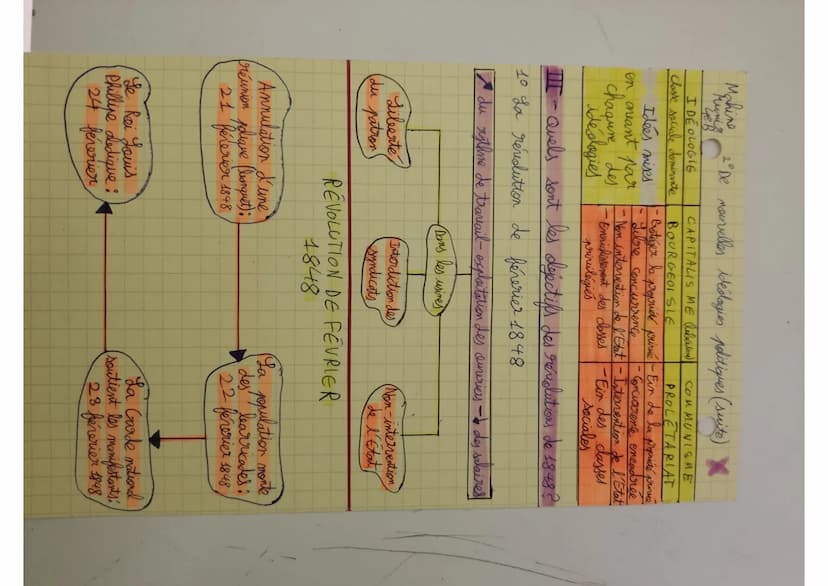 2° De nouvelles idéologies politiques (suite)
IDÉOLOGIE
CAPITALISME (libéralisme)
COMMUNISME
Classe sociale dominante
BOURGEOISIE
PROLÉTARIAT
Idées mises
en avant par
chacune des
idéologies
- Protéger la propriété privée
- Libre concurrence
- Non intervention de l'État
- Enrichissement des classes
privilégiées
- Fin de la propriété privée
- Concurrence encadrée
- Intervention de l'État
- Fin des classes
sociales
III - Quels sont les objectifs des révolutions de 1848 ?
1° La révolution de février 1848
↗ du rythme de travail - exploitation des ouvriers → des salaires
Dans les usines
Liberté
du patron
Interdiction des
syndicats
Non-intervention
de l'État
RÉVOLUTION DE FÉVRIER
1848
Annulation d'une
réunion politique (banquet) :
21 février 1848
La population monte
des barricades :
22 février 1848
Le Roi Louis
Philippe abdique :
24 février
La Garde national
soutient les manifestants :
23 février 1848